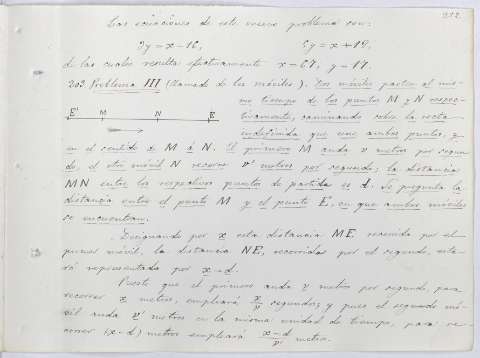 212.
Las ecuaciones de este nuevo problema son:
3y = x - 16,   5y = x + 19,
de las cuales resulta efectivamente x = 67, y = 17.
203 Problema III (llamado de los móviles). Dos móviles parten al mis-
mo tiempo de los puntos M y N respec-
tivamente, caminando sobre la recta
indefinida que une ambos puntos, y
E' M N E
en el sentido de M á N. El primero M anda v metros por segun-
do, el otro móvil N recorre v' metros por segundo; la distancia
MN entre los respectivos puntos de partida es d. Se pregunta la
distancia entre el punto M y el punto E, en que ambos móviles
se encuentran.
Designando por x esta distancia ME, recorrida por el
primer móvil, la distancia NE, recorrida por el segundo, esta-
rá representada por x - d.
Puesto que el primero anda v metros por segundo, para
recorrer x metros, empleará x/v segundos; y pues el segundo mó-
vil anda v' metros en la misma unidad de tiempo, para re-
correr (x - d) metros empleará x - d/v' metros.